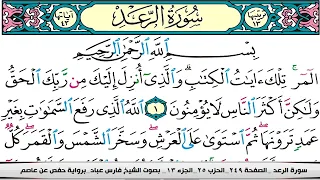 سُورَةُ الرَّعْدِ
بِسْمِ اللَّهِ الرَّحْمَٰنِ الرَّحِيمِ
الٓمٓرۚ تِلْكَ ءَايَٰتُ ٱلْكِتَٰبِۗ وَٱلَّذِىٓ أُنزِلَ إِلَيْكَ مِن رَّبِّكَ ٱلْحَقُّ
وَلَٰكِنَّ أَكْثَرَ ٱلنَّاسِ لَا يُؤْمِنُونَ ١ ٱللَّهُ ٱلَّذِى رَفَعَ ٱلسَّمَٰوَٰتِ بِغَيْرِ
عَمَدٍ تَرَوْنَهَاۖ ثُمَّ ٱسْتَوَىٰ عَلَى ٱلْعَرْشِۖ وَسَخَّرَ ٱلشَّمْسَ وَٱلْقَمَرَۖ كُلٌّ
سورة الرعد _ الصفحة ٢٤٩ _ الحزب ٢٥ _ الجزء ١٣ _ بصوت الشيخ فارس عباد _ برواية حفص عن عاصم